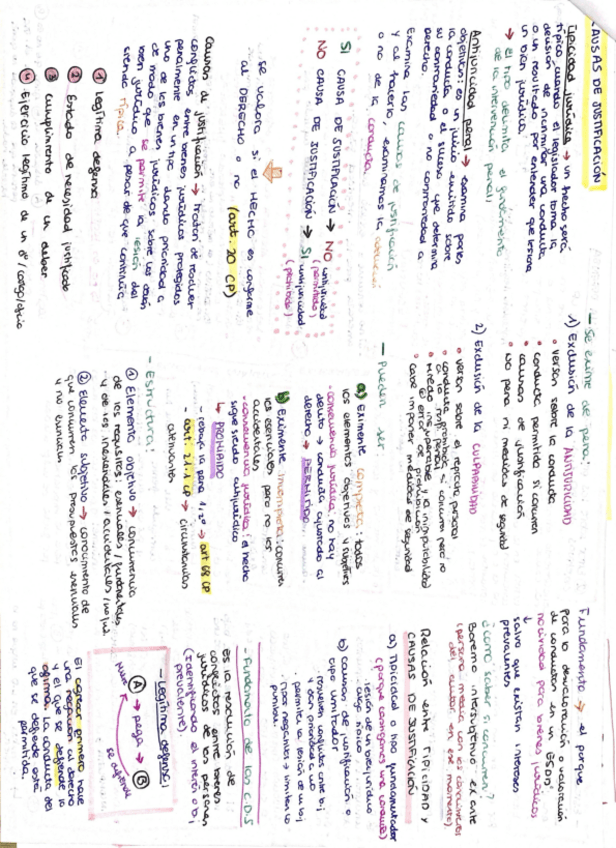 CAUSAS DE JUSTIFICACIÓN
Tipicidad jurídica → un hecho será
típico cuando el legislador toma la
decisión de incriminar una conducta
o un resultado por entender que lesiona
un bien jurídico.
→ el tipo delimita el fundamento
de la intervención penal.
Antijuricidad penal → examina partes
objetivas: es un juicio emitido sobre
la conducta o el suceso que determina
su contrariedad o no contrariedad a
derecho.
Examina las causas de justificación
y al hacerlo, examinamos la
o no de la conducta
SI CAUSA DE JUSTIFICACIÓN → NO antijuricidad
(permitido)
NO CAUSA DE JUSTIFICACIÓN → SI antijuricidad
(prohibido)
se valora si el HECHO es conforme
al DERECHO o no (art. 20 CP)
Causas de justificación → tratan de resolver
conflictos entre bienes jurídicos protegidos
penalmente en un tipo dando prioridad a
uno de los bienes jurídicos sobre los demás
de modo que se permite la lesión del
bien jurídico a pesar de que continúa
siendo típica.
① Legítima defensa
② Estado de necesidad justificado
③ Cumplimiento de un deber
④ Ejercicio legítimo de un dº/cargo/oficio
- Se exime de pena:
1) Exclusión de la ANTIJURICIDAD
• versan sobre la conducta
• conducta permitida si concurren
• causas de justificación
• no pena ni medidas de seguridad
2) Exclusión de la CULPABILIDAD
• versan sobre el reproche personal
• conducta prohibida si concurre pero no
• miedo insuperable y la inimputabilidad
@ error de prohibición
• cabe imponer medidas de seguridad
- Pueden ser
a) Eximente completa: todos
los elementos objetivos y subjetivos
- consecuencia jurídica: no hay
delito → conducta ajustada al
derecho → PERMITIDO
b) Eximente incompleta: concurren
los esenciales pero no los
accidentales
- consecuencia jurídica: el hecho
sigue siendo antijurídico
↳ PROHIBIDO
- rebaja la pena 1, 2º → art 68 CP
- art. 21.1 CP → circunstancias
atenuantes
- Estructura:
① Elemento objetivo → concurrencia
de los requisitos: esenciales/fundamentales
y de los inesenciales/accidentales
② Elemento subjetivo → conocimiento de
que concurren los presupuestos esenciales
y no esenciales
Fundamento → el porque
Para la desvaloración o valoración
de conductas en un ESDD
nocividad para bienes jurídicos
↓
salvo que existan intereses
prevalentes
¿Cómo saber si concurren?
Baremo intersubjetivo ex ante
(persona media con los conocimientos
del autor en ese momento)
Relación entre TIPICIDAD y
CAUSAS DE JUSTIFICACIÓN
a) Tipicidad o tipo fundamentador
lesión de un bien jurídico
b) Causas de justificación o
tipo limitador
resuelve conflictos entre bj
y da prioridad a uno
permite la lesión de un bj
- Fundamento de las C.D.J
es la resolución de
conflictos entre bienes
jurídicos de las personas
(identificando el interés o bj
prevalente).
- Legítima defensa:
Ⓐ → pega → Ⓑ
muere
se defiende
El agresor primero hace
una negación del derecho
y el que se defiende la
afirma, la conducta del
que se defiende está
permitida.